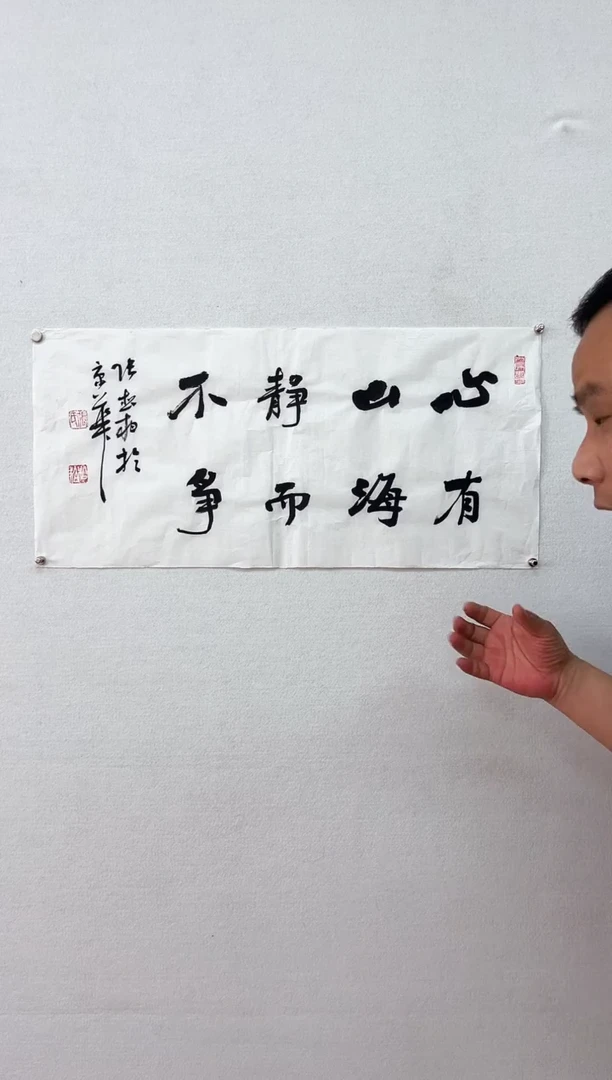 心有
山海
静而
不争
张
於
京华